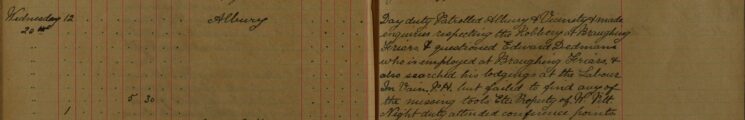 Wednesday 12 Albury Day duty Patrolled Albury & Vicinity & made
20th enquiries respecting the Robbery At Braughing
" Friars & questioned Edward Dedman
" who is employed at Braughing Friars, &
" also searched his lodgings at the Labour
" In Vain, P.H. but failed to find any of
" 5 30 the missing tools Etc Property of W. Pitt
1 Night duty attended conference points